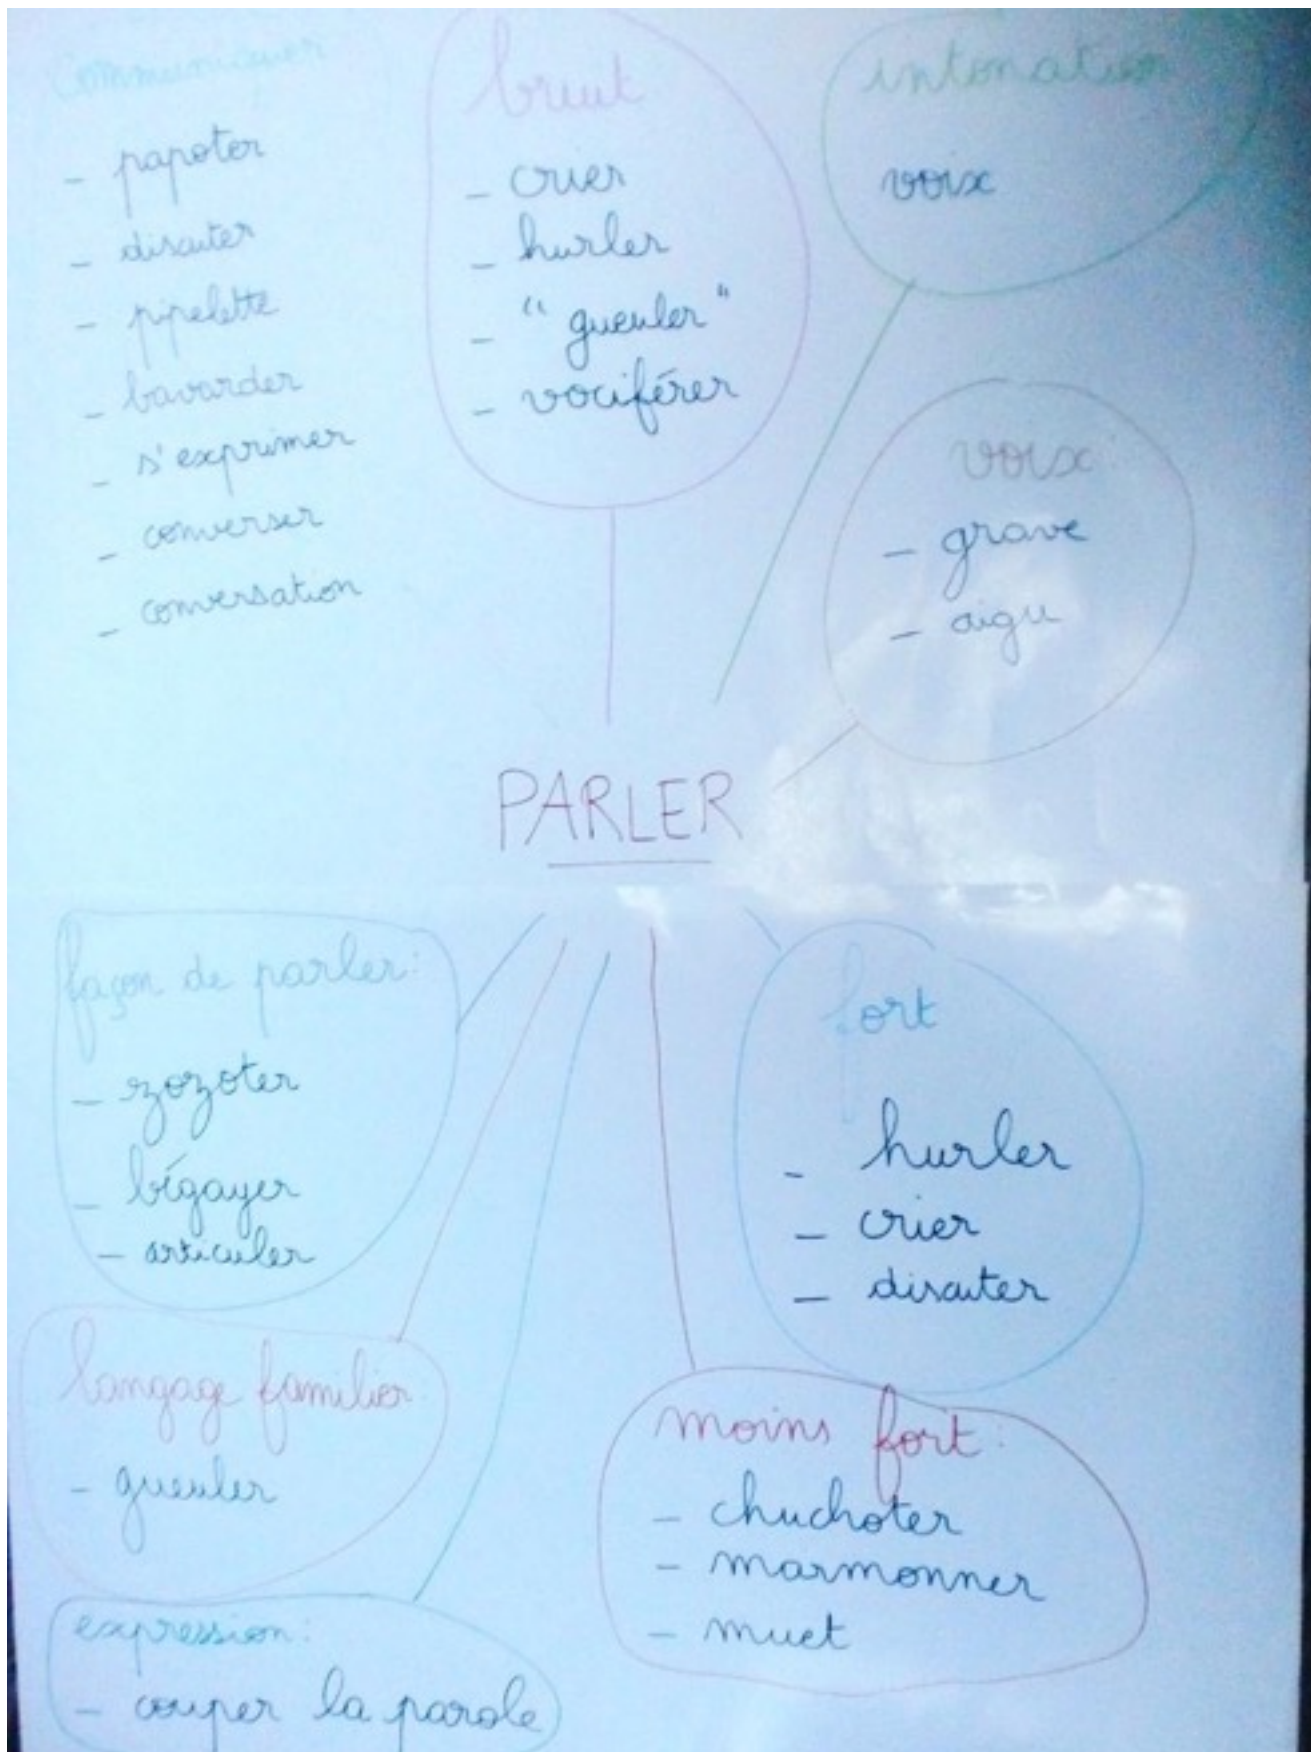 Communiquer
- papoter
- discuter
- pipelette
- bavarder
- s'exprimer
- converser
- conversation
bruit
- crier
- hurler
- "gueuler"
- vociférer
intonation
voix
voix:
- grave
- aigu
PARLER
façon de parler:
- zozoter
- bégayer
- articuler
fort
- hurler
- crier
- discuter
langage familier
- gueuler
moins fort:
- chuchoter
- marmonner
- muet
expression:
- couper la parole